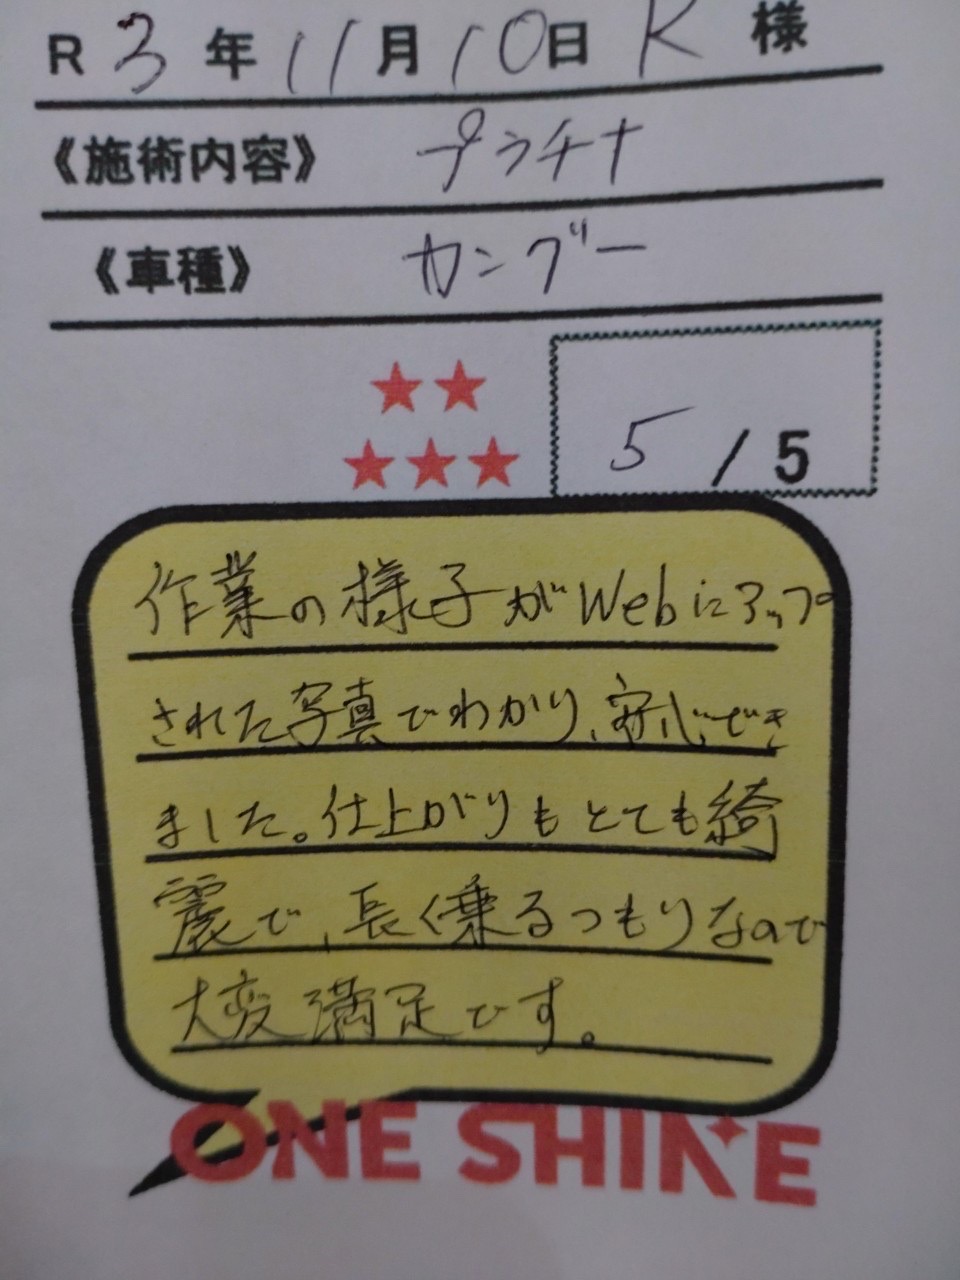 R 3年 11月 10日 K 様
《施術内容》 プラチナ
《車種》 カングー
★★
★★★
5 / 5
作業の様子がWebにアップ
された写真でわかり、安心でき
ました。仕上がりもとても綺
麗で、長く乗るつもりなので
大変満足です。
ONE SHINE